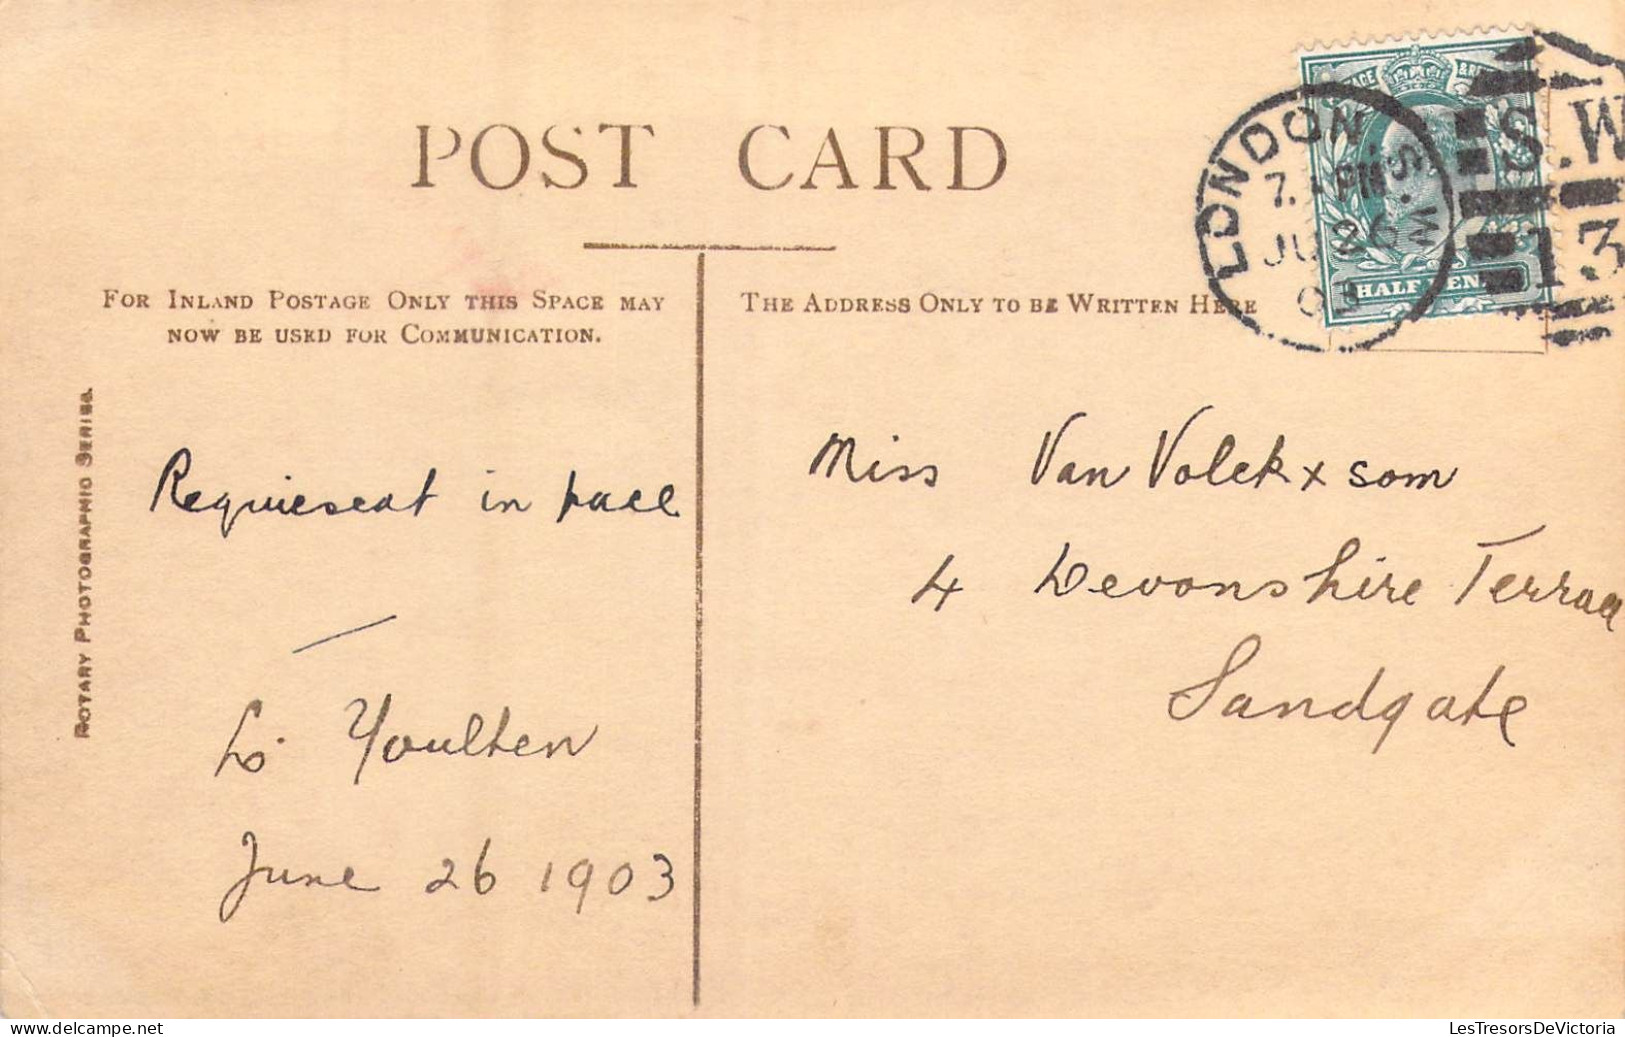 POST CARD
FOR INLAND POSTAGE ONLY THIS SPACE MAY
NOW BE USED FOR COMMUNICATION.
THE ADDRESS ONLY TO BE WRITTEN HERE
LONDON.S.W
7. PM
JU 26
03
S.W
13
POSTAGE & REVENUE
HALF PENNY
ROTARY PHOTOGRAPHIC SERIES.
Requiescat in pace
L. Youlten
June 26 1903
Miss Van Volckxsom
4 Devonshire Terrace
Sandgate
www.delcampe.net
LesTresorsDeVictoria